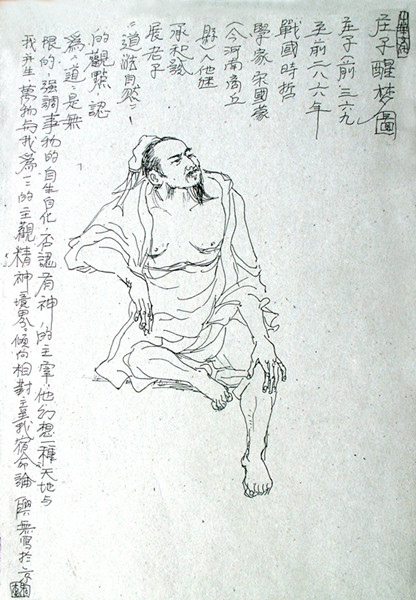 庄子醒梦圖
庄子(前三六九
至前二八六年
戰國時哲
學家宋國蒙
(今河南商丘
縣)人他继
承和發
展老子
“道法自然”
的觀點認
為“道”是無
限的、强調事物的自生自化,否認有神的主宰,他幻想一種天地与
我并生萬物与我為一的主觀精神境界,傾向相對主義宿命論 寫於京